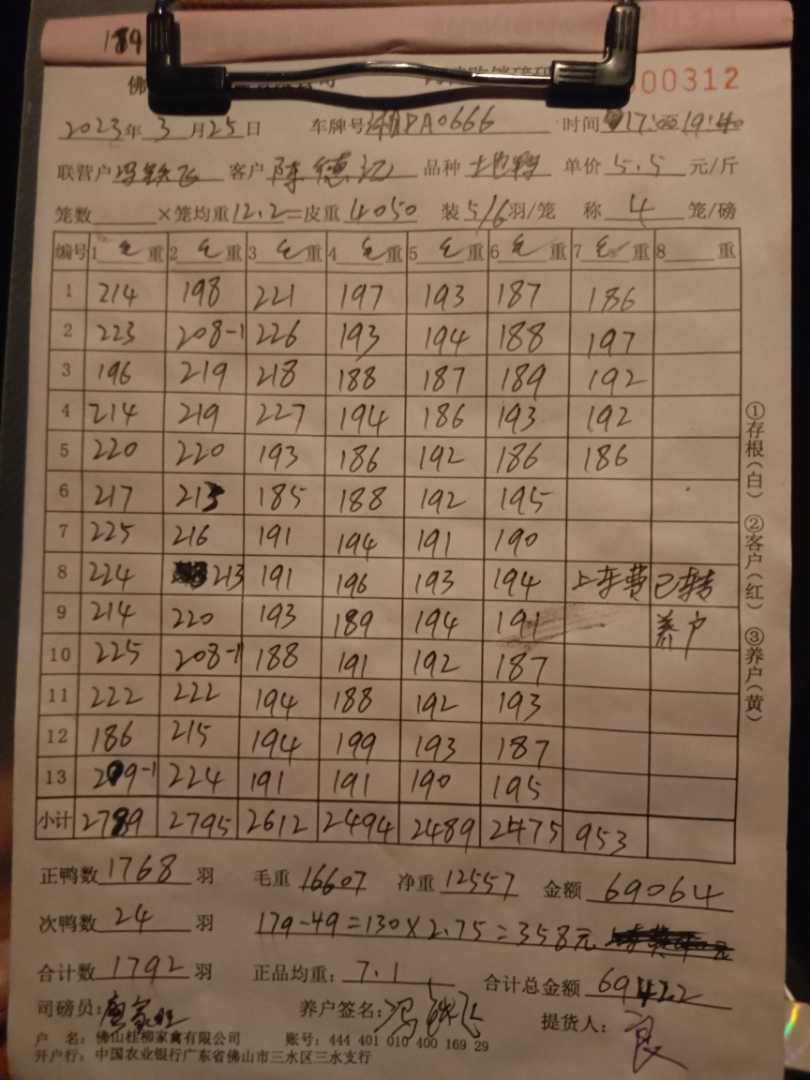 189
000312
2023年3月25日 车牌号 PA0666 时间 17:00 19:40
联营户 冯铁飞 客户 陈德记 品种 土鸭 单价 5.5 元/斤
笼数 ×笼均重 12.2 =皮重 4050 装 5/6 羽/笼 称 4 笼/磅
编号 1 毛重 2 毛重 3 毛重 4 毛重 5 毛重 6 毛重 7 毛重 8 重
1 214 198 221 197 193 187 186
2 223 208-1 226 193 194 188 197
3 196 219 218 188 187 189 192
4 214 219 227 194 186 193 192
5 220 220 193 186 192 186 186
6 217 213 185 188 192 195
7 225 216 191 194 191 190
8 224 213 191 196 193 194 上车费 已转
9 214 220 193 189 194 191 养户
10 225 208-1 188 191 192 187
11 222 222 194 188 192 193
12 186 215 194 199 193 187
13 209-1 224 191 191 190 195
小计 2789 2795 2612 2494 2489 2475 953
①存根(白) ②客户(红) ③养户(黄)
正鸭数 1768 羽 毛重 16607 净重 12557 金额 69064
次鸭数 24 羽 179-49=130×2.75=358元
合计数 1792 羽 正品均重: 7.1 合计总金额 69422
司磅员: 养户签名: 冯铁飞 提货人: 良
户 名: 佛山桂柳家禽有限公司 账号: 444 401 010 400 169 29
开户行: 中国农业银行广东省佛山市三水区三水支行